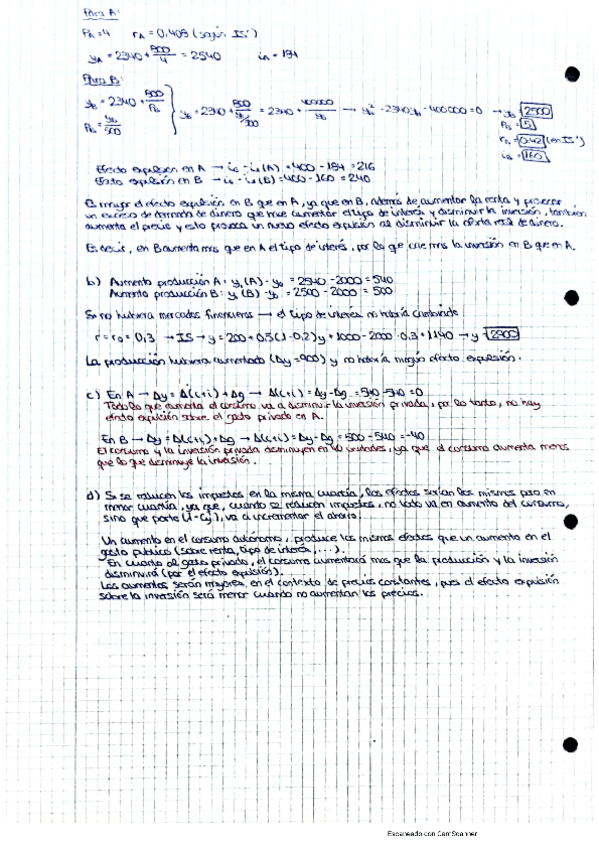 Para A:
PA = 4 rA = 0,408 (según IS')
yA = 2340 + 800/4 = 2540 iA = 184
Para B:
yB = 2340 + 800/PB
PB = yB/500
yB = 2340 + 800/(yB/500) = 2340 + 400000/yB → yB² - 2340yB - 400000 = 0 → yB = 2500
PB = 5
rB = 0,42 (en IS')
iB = 160
Efecto expulsión en A → i0 - i1(A) = 400 - 184 = 216
Efecto expulsión en B → i0 - i1(B) = 400 - 160 = 240
Es mayor el efecto expulsión en B que en A, ya que en B, además de aumentar la renta y
un exceso de demanda de dinero que hace aumentar el tipo de interés y disminuir la inversión, también
aumenta el precio y esto provoca un nuevo efecto expulsión al disminuir la oferta real de dinero.
Es decir, en B aumenta más que en A el tipo de interés, por lo que cae más la inversión en B que en A.
b) Aumento producción A: y1(A) - y0 = 2540 - 2000 = 540
Aumento producción B: y1(B) - y0 = 2500 - 2000 = 500
Si no hubiera mercados financieros → el tipo de interés no habría cambiado
r = r0 = 0,3 → IS → y = 200 + 0,5(1-0,2)y + 1000 - 2000·0,3 + 1140 → y = 2900
La producción hubiera aumentado (Δy = 900) y no habría ningún efecto expulsión.
c) En A → Δy = Δ(c+i) + Δg → Δ(c+i) = Δy - Δg = 540 - 540 = 0
Todo lo que aumenta el consumo va a disminuir la inversión privada, por lo tanto, no hay
efecto expulsión sobre el gasto privado en A.
En B → Δy = Δ(c+i) + Δg → Δ(c+i) = Δy - Δg = 500 - 540 = -40
El consumo y la inversión privada disminuyen en 40 unidades, ya que el consumo aumenta menos
que lo que disminuye la inversión.
d) Si se reducen los impuestos en la misma cuantía, los efectos serían los mismos pero en
menor cuantía, ya que, cuando se reducen impuestos, no todo va en aumento del consumo,
sino que parte (1-c), va a incrementar el ahorro.
Un aumento en el consumo autónomo, produce los mismos efectos que un aumento en el
gasto público (sobre renta, tipo de interés,...).
En cuanto al gasto privado, el consumo aumentará más que la producción y la inversión
disminuirá (por el efecto expulsión).
Los aumentos serán mayores en el contexto de precios constantes, pues el efecto expulsión
sobre la inversión será menor cuando no aumentan los precios.
Escaneado con CamScanner